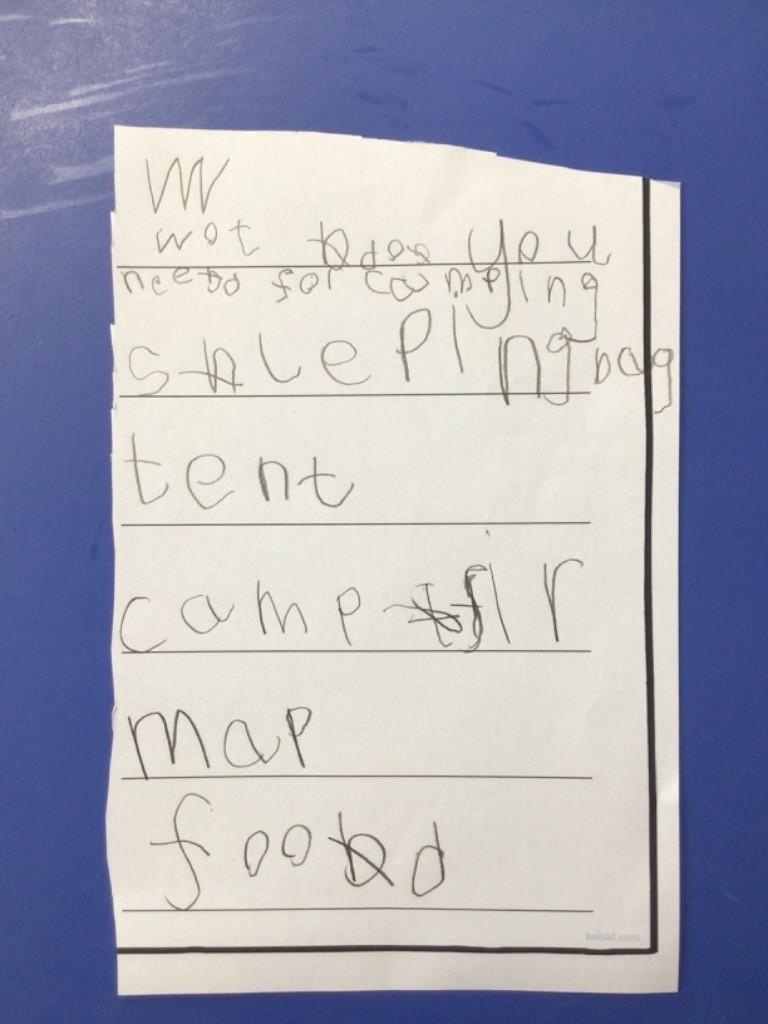 W
wot dos you
need for camping
slepingbag
tent
campfir
map
food
twinkl.com